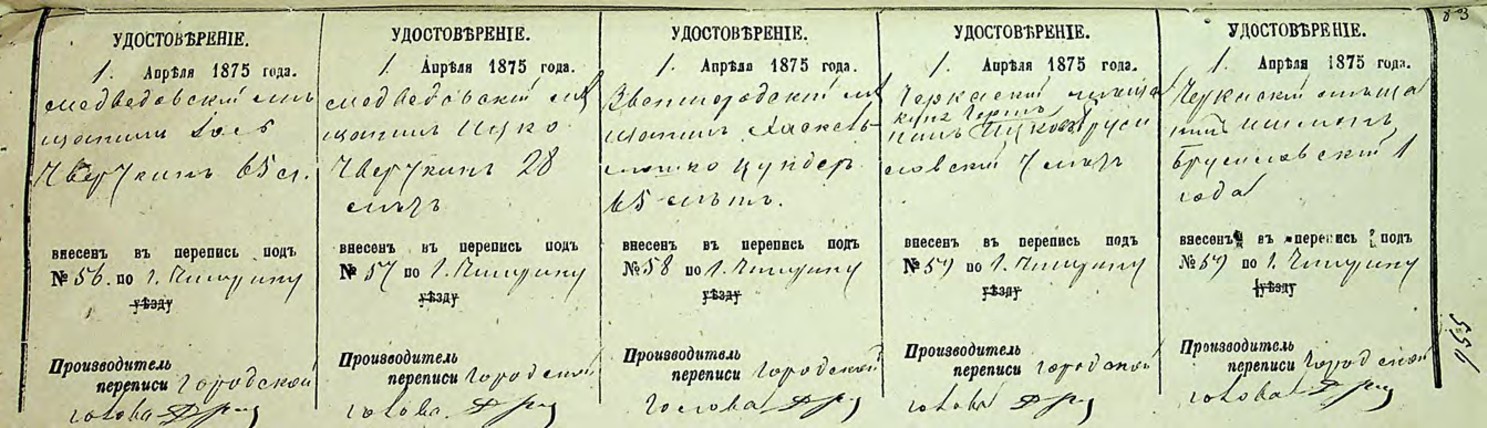 83
УДОСТОВѢРЕНІЕ.
1. Апрѣля 1875 года.
медведовский мѣ
щанинъ Іосъ
65
внесенъ въ перепись подъ
№ 56. по г. Чигирину
уѣзду
Производитель
переписи городской
голова
УДОСТОВѢРЕНІЕ.
1. Апрѣля 1875 года.
медведовский мѣ
щанинъ Ицко
28
лѣтъ
внесенъ въ перепись подъ
№ 57 по г. Чигирину
уѣзду
Производитель
переписи городской
голова
УДОСТОВѢРЕНІЕ.
1. Апрѣля 1875 года.
Звенигородский мѣ
щанинъ Хаскель
мошко Цундеръ
65 лѣтъ.
внесенъ въ перепись подъ
№ 58 по г. Чигирину
уѣзду
Производитель
переписи городской
голова
УДОСТОВѢРЕНІЕ.
1. Апрѣля 1875 года.
Черкаский мѣща
нинъ Ицков Бруси
ловский 7 лѣтъ
внесенъ въ перепись подъ
№ 59 по г. Чигирину
уѣзду
Производитель
переписи городской
голова
УДОСТОВѢРЕНІЕ.
1. Апрѣля 1875 года.
Черкаский мѣща
нинъ Шимонъ
Брусиловский 1
года
внесенъ въ перепись подъ
№ 59 по г. Чигирину
уѣзду
Производитель
переписи городской
голова
556